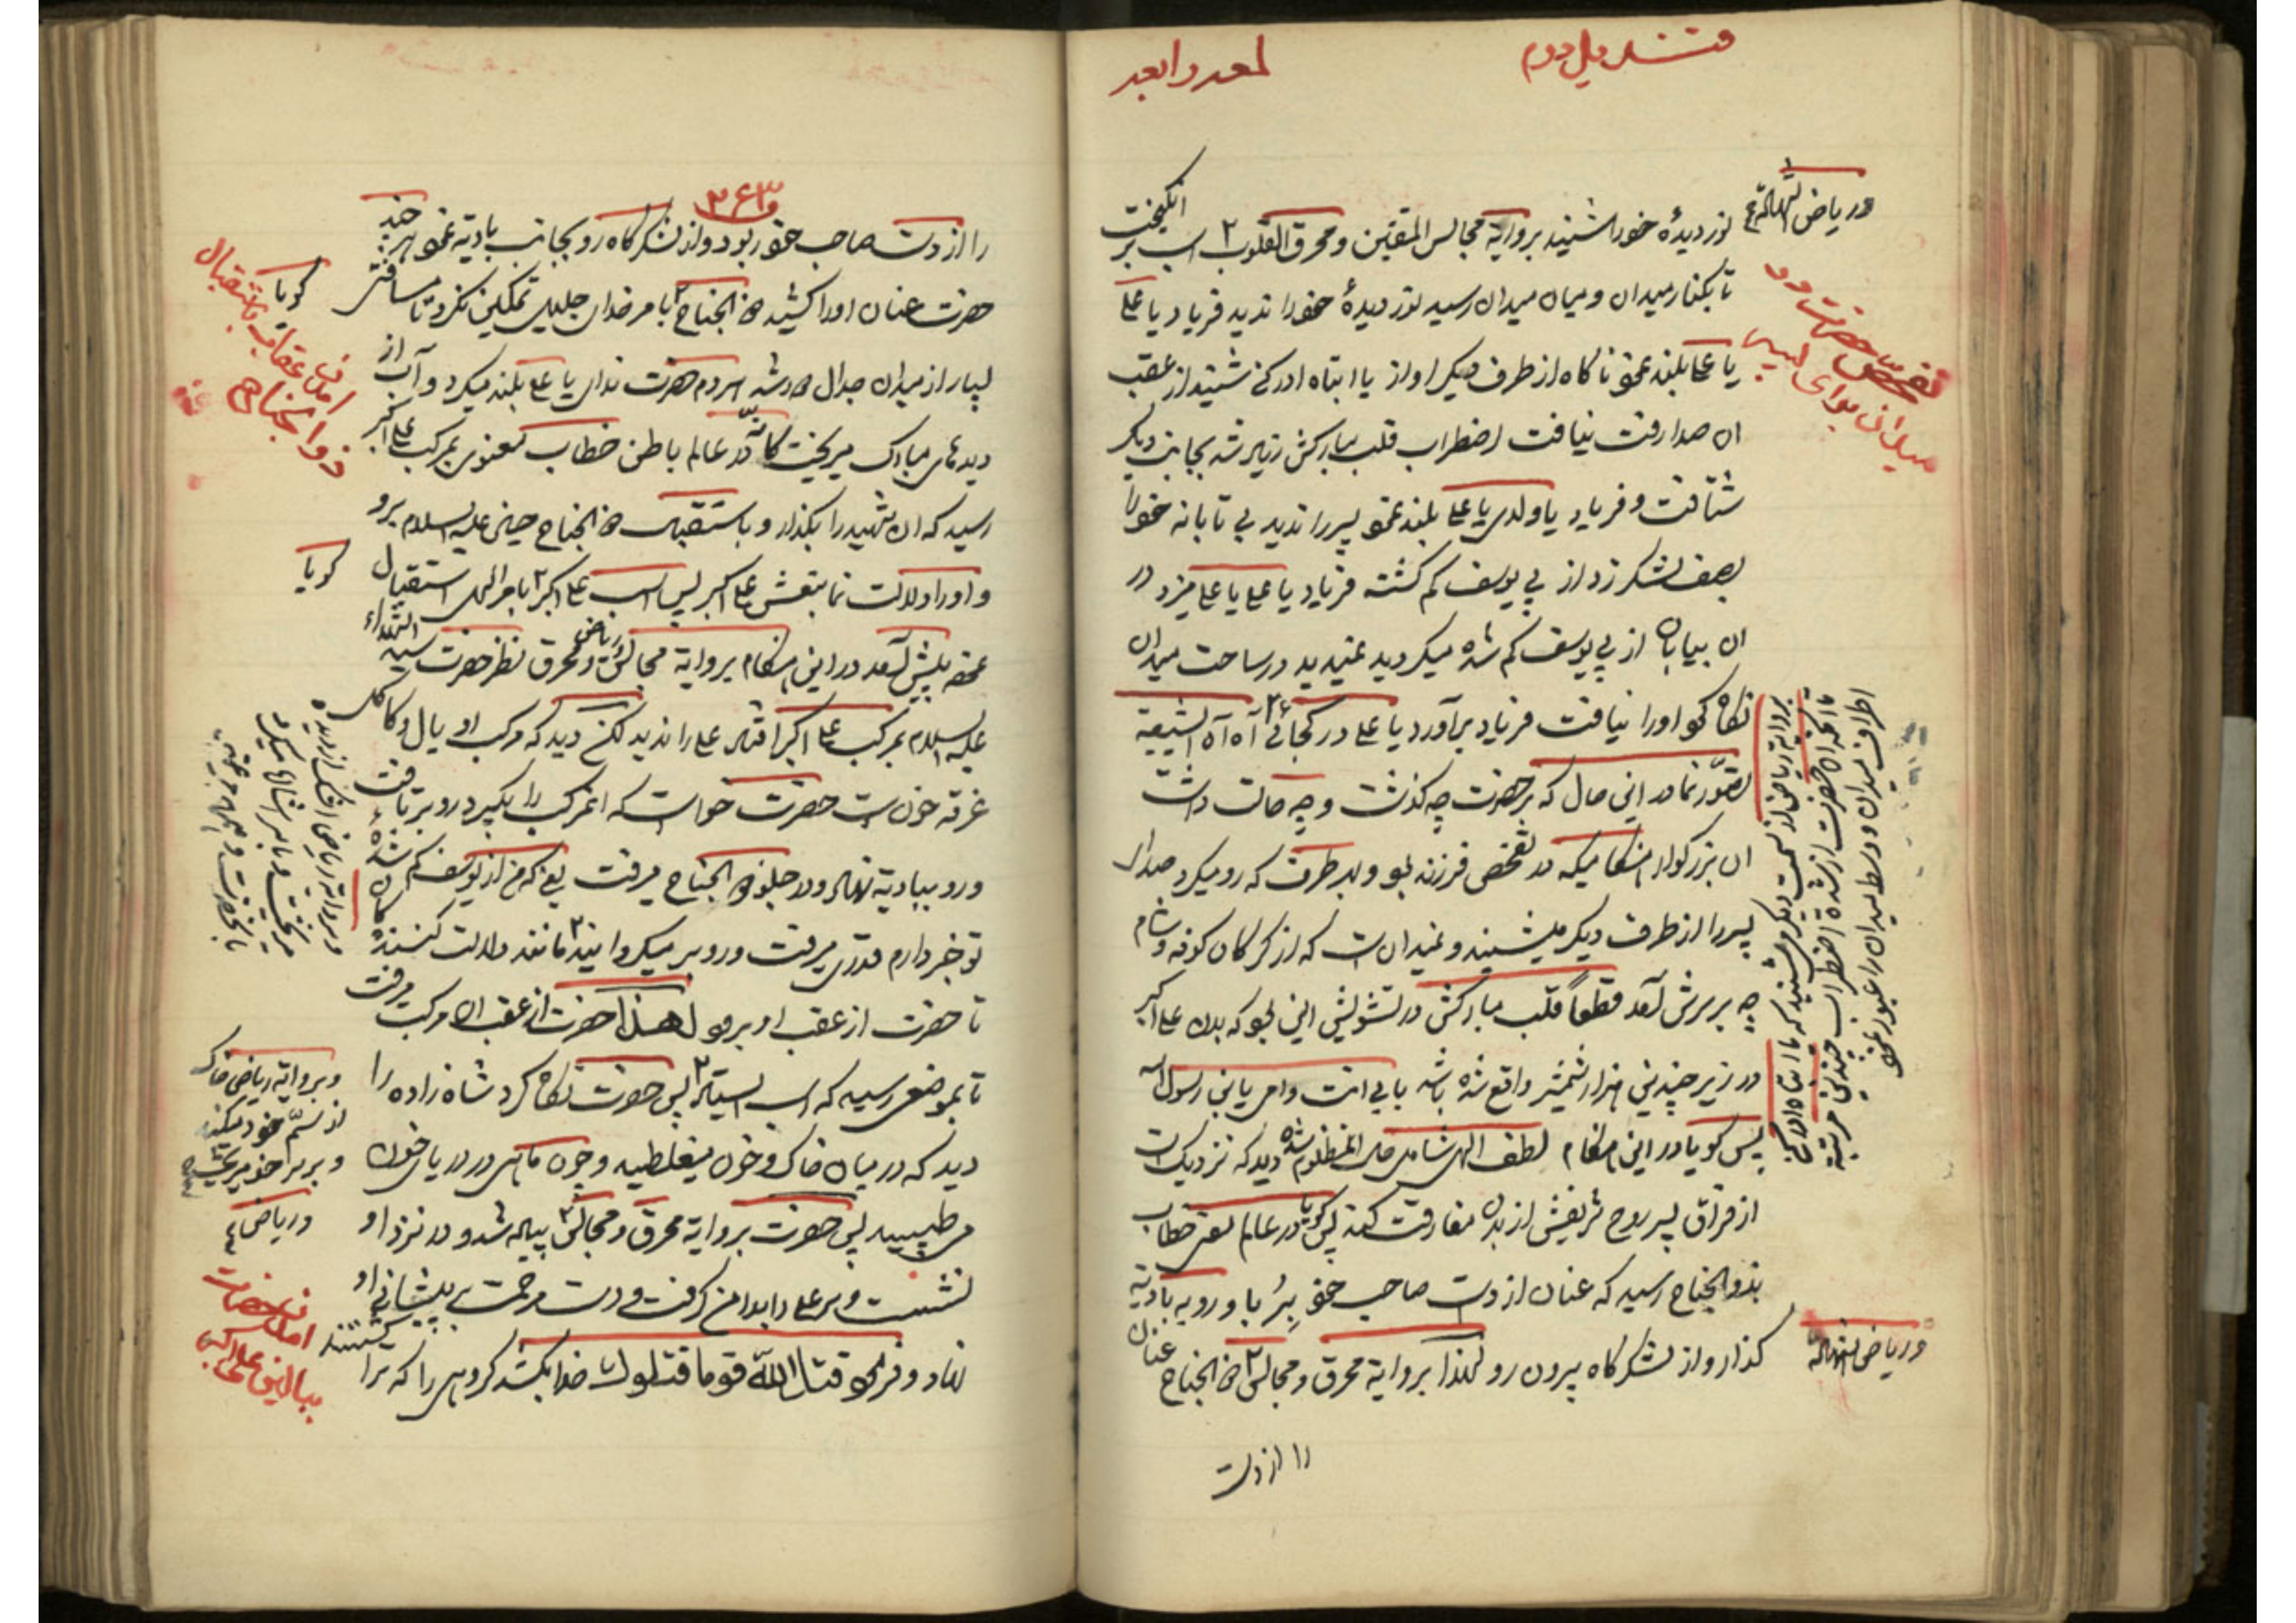 قندیل دوم
لمعه رابعه
در ریاض الشهادة
نور دیدهٔ خود را شنید بروایة مجالس المتقین و محرق القلوب ۲ اسب بر انگیخت
تا بکنار میدان و میان میدان رسید نور دیدهٔ خود را ندید فریاد یا علی
یا علی بلند نمود ناگاه از طرف دیگر اواز یا ابتاه ادرکنی شنید از عقب
ان صدا رفت نیافت اضطراب قلب مبارکش زیاد شد بجانب دیگر
شتافت و فریاد یا ولدی یا علی بلند نمود پسر را ندید بی تابانه خود را
بصف لشکر زد از پی یوسف گم گشته فریاد یا علی یا علی میزد در
ان بیابان از پی یوسف گم شده میگردید نمیدید در ساحت میدان
نگاه کرد او را نیافت فریاد برآورد یا علی در کجائی آه آه الشیعة
تصوّر نما در این حال که بر حضرت چه گذشت و چه حالت داشت
ان بزرگوار هنگامیکه در تفحص فرزند بود و بهر طرف که رو میکرد صدای
پسر را از طرف دیگر میشنید و نمیدانست که از گرگان کوفه و شام
چه بر سرش آمد قطعاً قلب مبارکش در تشویش این بود که بدن علی اکبر
در زیر چندین هزار شمشیر واقع شده باشد بابی انت وامی یابن رسول الله
پس گویا در این هنگام لطف الهی شامل حال المظلوم شده دید که نزدیک است
از فراق پسر روح شریفش از بدن مفارقت کند پس گویا در عالم معنی خطاب
بذو الجناح رسید که عنان از دست صاحب خود بِرُبا و رو به بادیه
گذار و از لشکرگاه بیرون رو لهذا بروایة محرق و مجالس ۲ ذو الجناح عنان
در ریاض الشهادة
را از دست
تفحص حضرت در
میدان برای
بروایة ریاض از سمت دیگر میشنید که یا ابتاه ادرکنی
تا آنکه ان حضرت از شدة اضطراب چندین مرتبه
اطراف میدان و وسط میدان را عبور نمود
۳۶۳
را از دست صاحب خود ربود و از لشکرگاه رو بجانب بادیه نمود هر چند
حضرت عنان او را کشید ذو الجناح ۲ بامر خدای جلیل تمکین نکرد تا مسافتی
بسیار از میدان جدال دور شد هر دم حضرت ندای یا علی بلند میکرد و آب از
دیدهای مبارک میریخت گویا در عالم باطن خطاب معنوی بمرکب علی اکبر
رسید که ان شهید را بگذار و باستقبال ذو الجناح حسین علیه السلام برو
و او را دلالت نما بنعش علی اکبر پس اسب علی اکبر ۲ بامر الهی استقبال
نموده پیش آمد در این هنگام بروایة مجالس و ریاض و محرق نظر حضرت سید الشهداء
علیه السلام بمرکب علی اکبر افتاد علی را ندید لکن دید که مرکب او یال و کاکل
غرقه خون است حضرت خواست که مرکب را بگیرد رو بر تافت
و رو ببادیه نهاد و در جلو ذو الجناح میرفت یعنی که من از یوسف گم شدهٔ
تو خبر دارم قدری میرفت و رو بر میگردانید ۲ مانند دلالت کنندگان
تا حضرت از عقب او برود لهذا حضرت از عقب ان مرکب میرفت
تا بموضعی رسید که اسب ایستاد ۲ پس حضرت نگاه کرد شاه زاده را
دید که در میان خاک و خون میغلطید و چون ماهی در دریای خون
می طپید پس حضرت بروایة محرق و مجالس ۲ پیاده شد و در نزد او
نشست و سر علی را بدامن گرفت و دست مرحمت به پیشانی او
نهاد و فرمود قتل الله قوما قتلوك خدا بکشد گروهی را که ترا کشتند
گویا
امدن عقاب باستقبال
ذو الجناح
گویا
و بروایة ریاض اشک از دیده
میریخت
و بروایة ریاض خاک
از سمّ خود میکند
و بر سر خود میریخت
در ریاض
امدن حضرت
ببالین علی اکبر